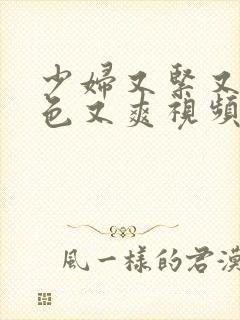 少婦又緊又
色又爽視頻
風一樣的君漠